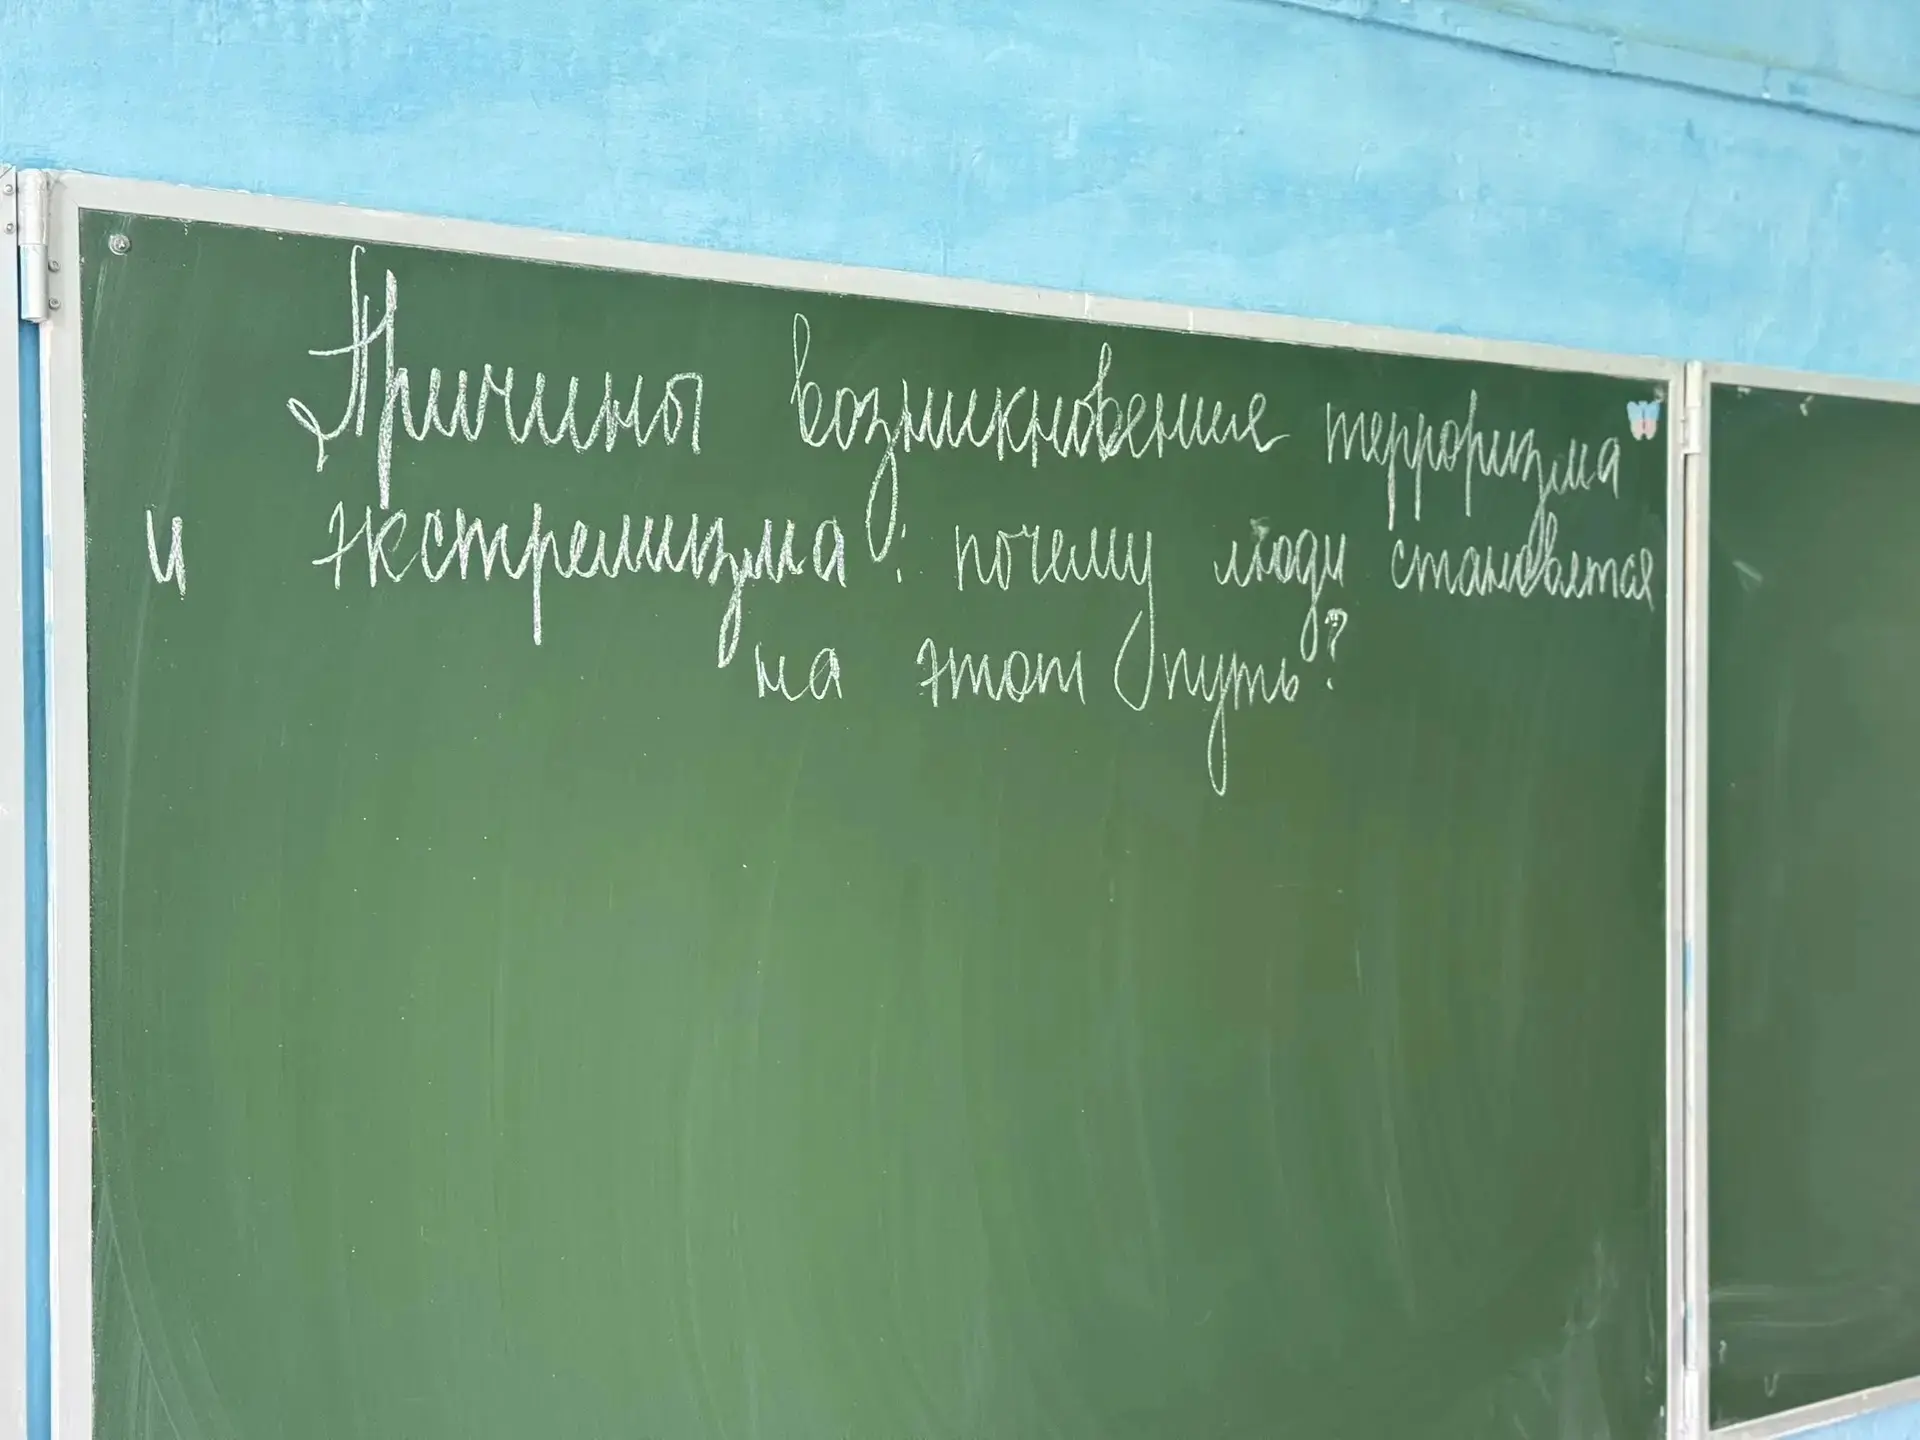 Причины возникновения терроризма
и экстремизма: почему люди становятся
на этот путь?